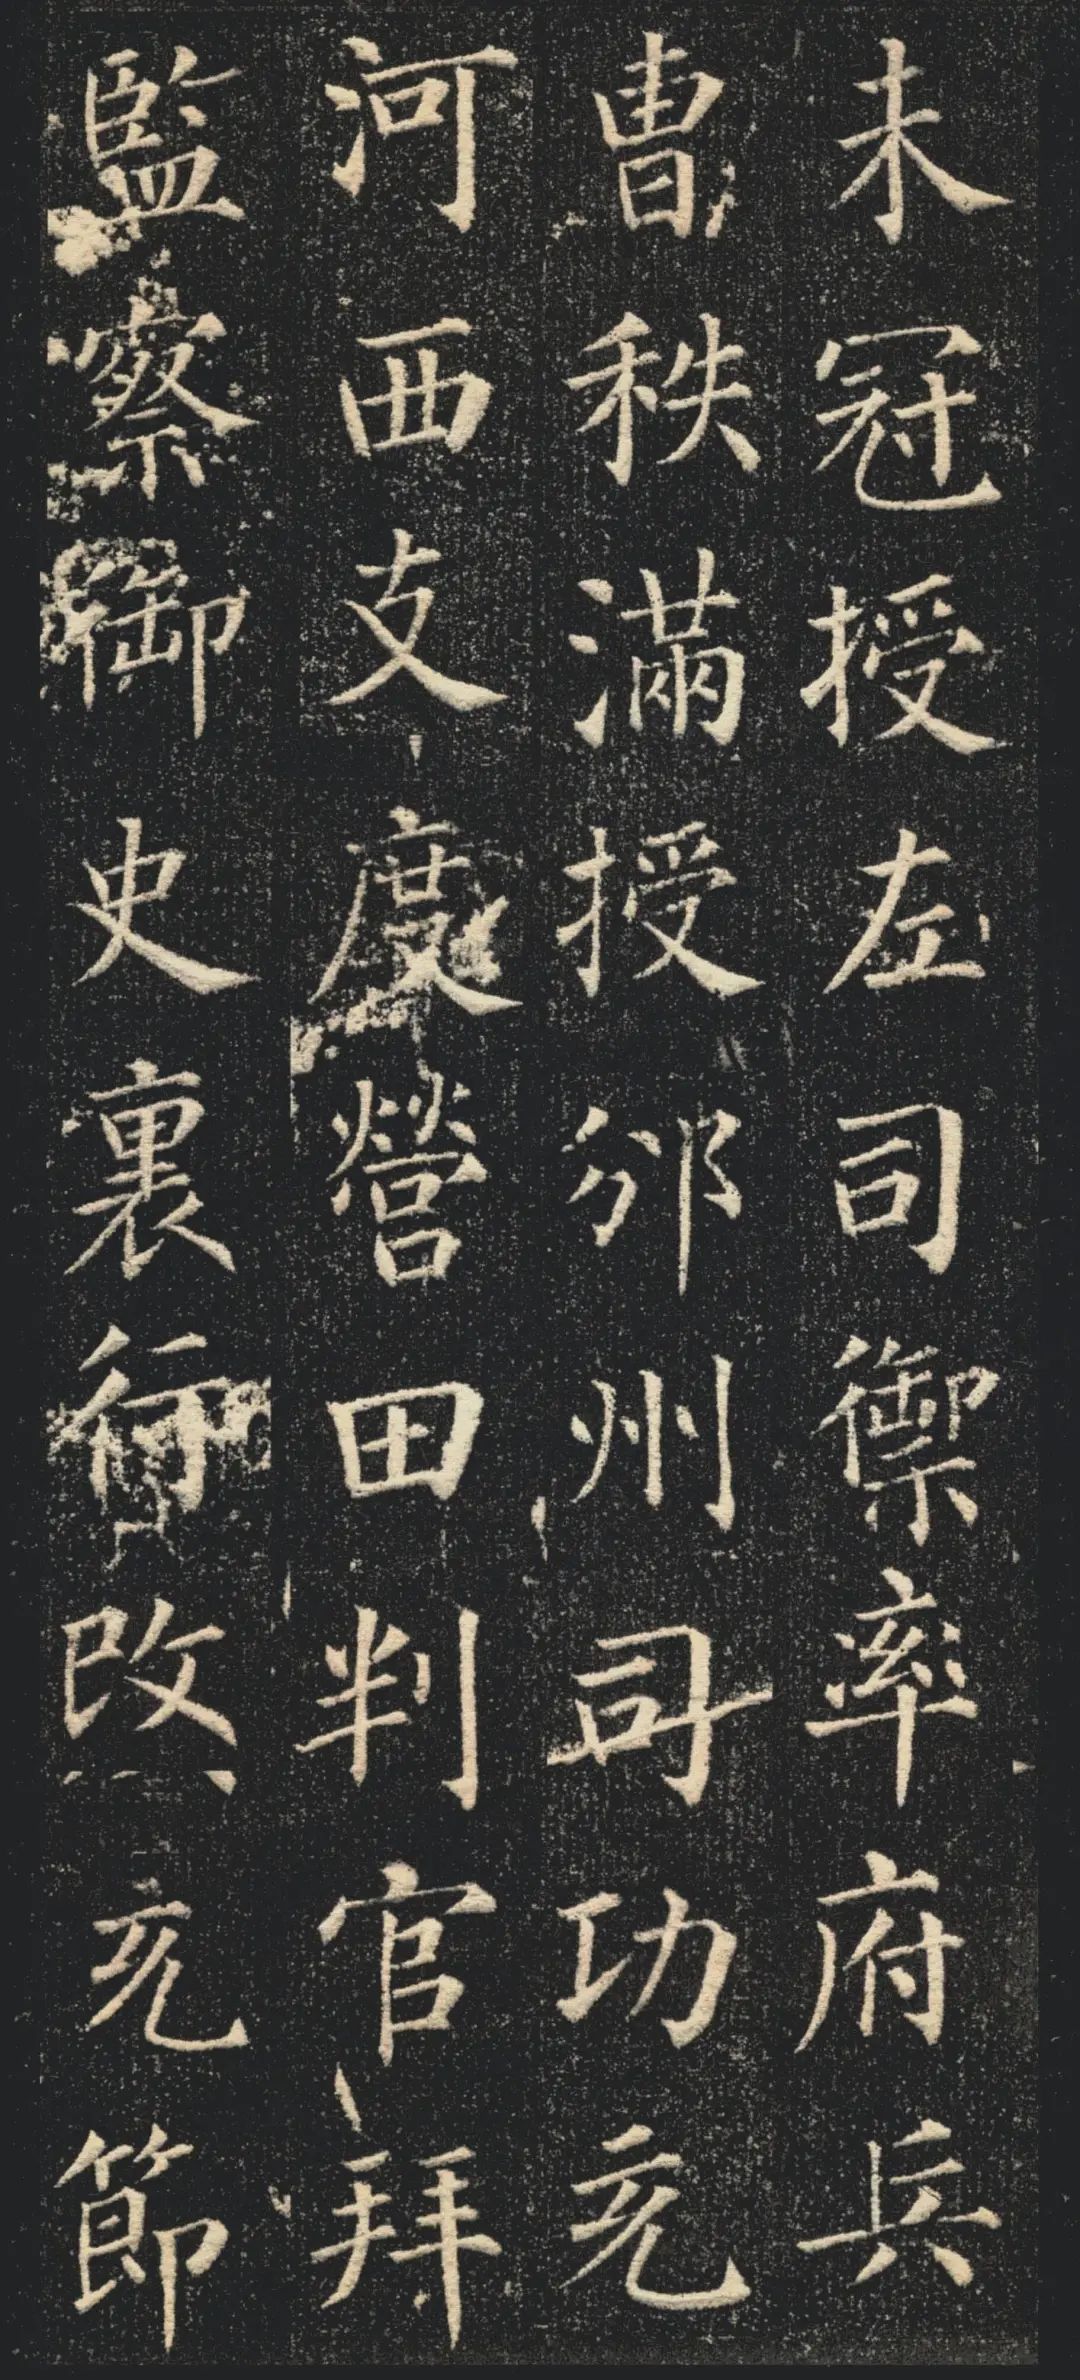 未冠授左司禦率府兵
曹秩滿授邠州司功充
河西支度營田判官拜
監察御史裏行改充節